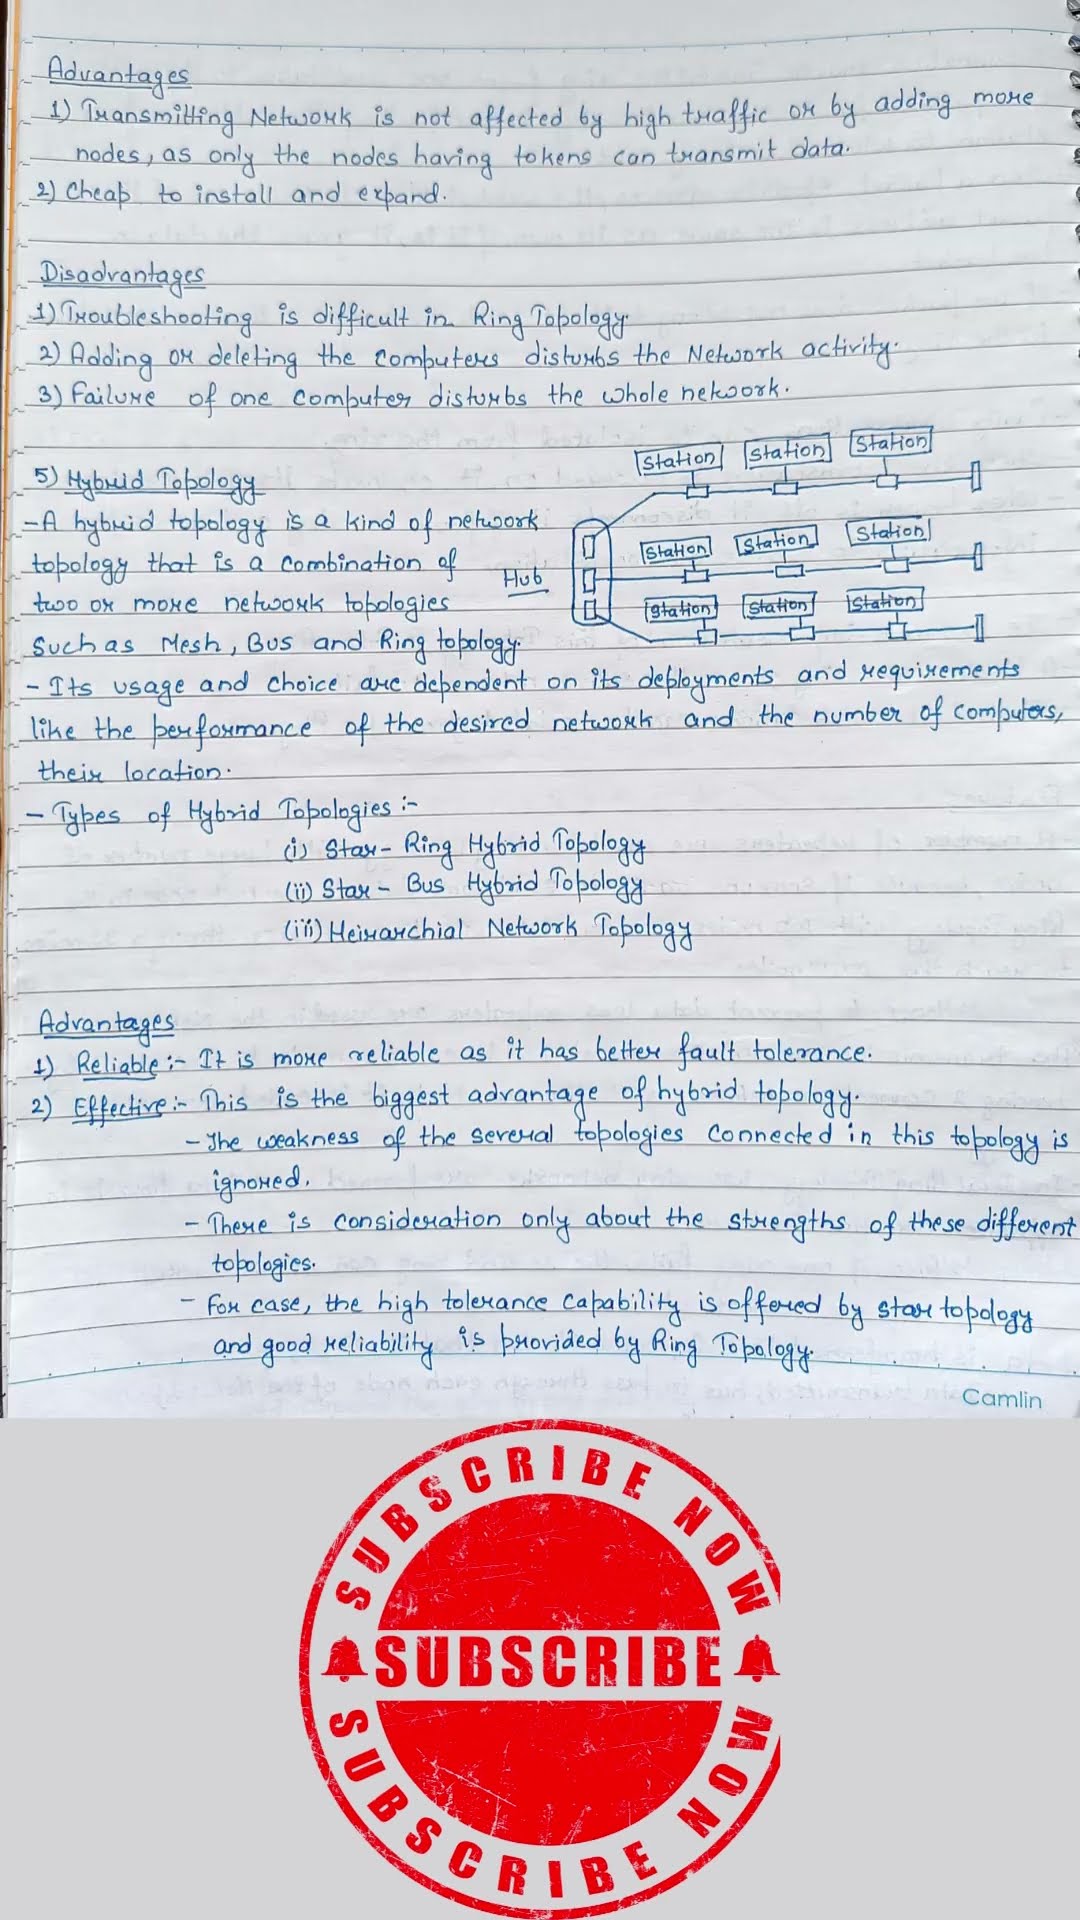 Advantages
1) Transmitting Network is not affected by high traffic or by adding more
nodes, as only the nodes having tokens can transmit data.
2) Cheap to install and expand.
Disadvantages
1) Troubleshooting is difficult in Ring Topology.
2) Adding or deleting the computers disturbs the Network activity.
3) Failure of one computer disturbs the whole nekwork.
Station Station Station
5) Hybrid Topology
- A hybrid topology is a kind of network
Station Station Station
topology that is a combination of
Hub
two or more network topologies
Station Station Station
Such as Mesh, Bus and Ring topology.
- Its usage and choice are dependent on its deployments and requirements
like the performance of the desired network and the number of computers,
their location.
- Types of Hybrid Topologies :-
(i) Star - Ring Hybrid Topology
(ii) Star - Bus Hybrid Topology
(iii) Heirarchial Network Topology
Advantages
1) Reliable :- It is more reliable as it has better fault tolerance.
2) Effective :- This is the biggest advantage of hybrid topology.
- The weakness of the several topologies connected in this topology is
ignored.
- There is consideration only about the strengths of these different
topologies.
- For case, the high tolerance capability is offered by star topology
and good reliability is provided by Ring Topology.
Camlin
SUBSCRIBE NOW
SUBSCRIBE
SUBSCRIBE NOW